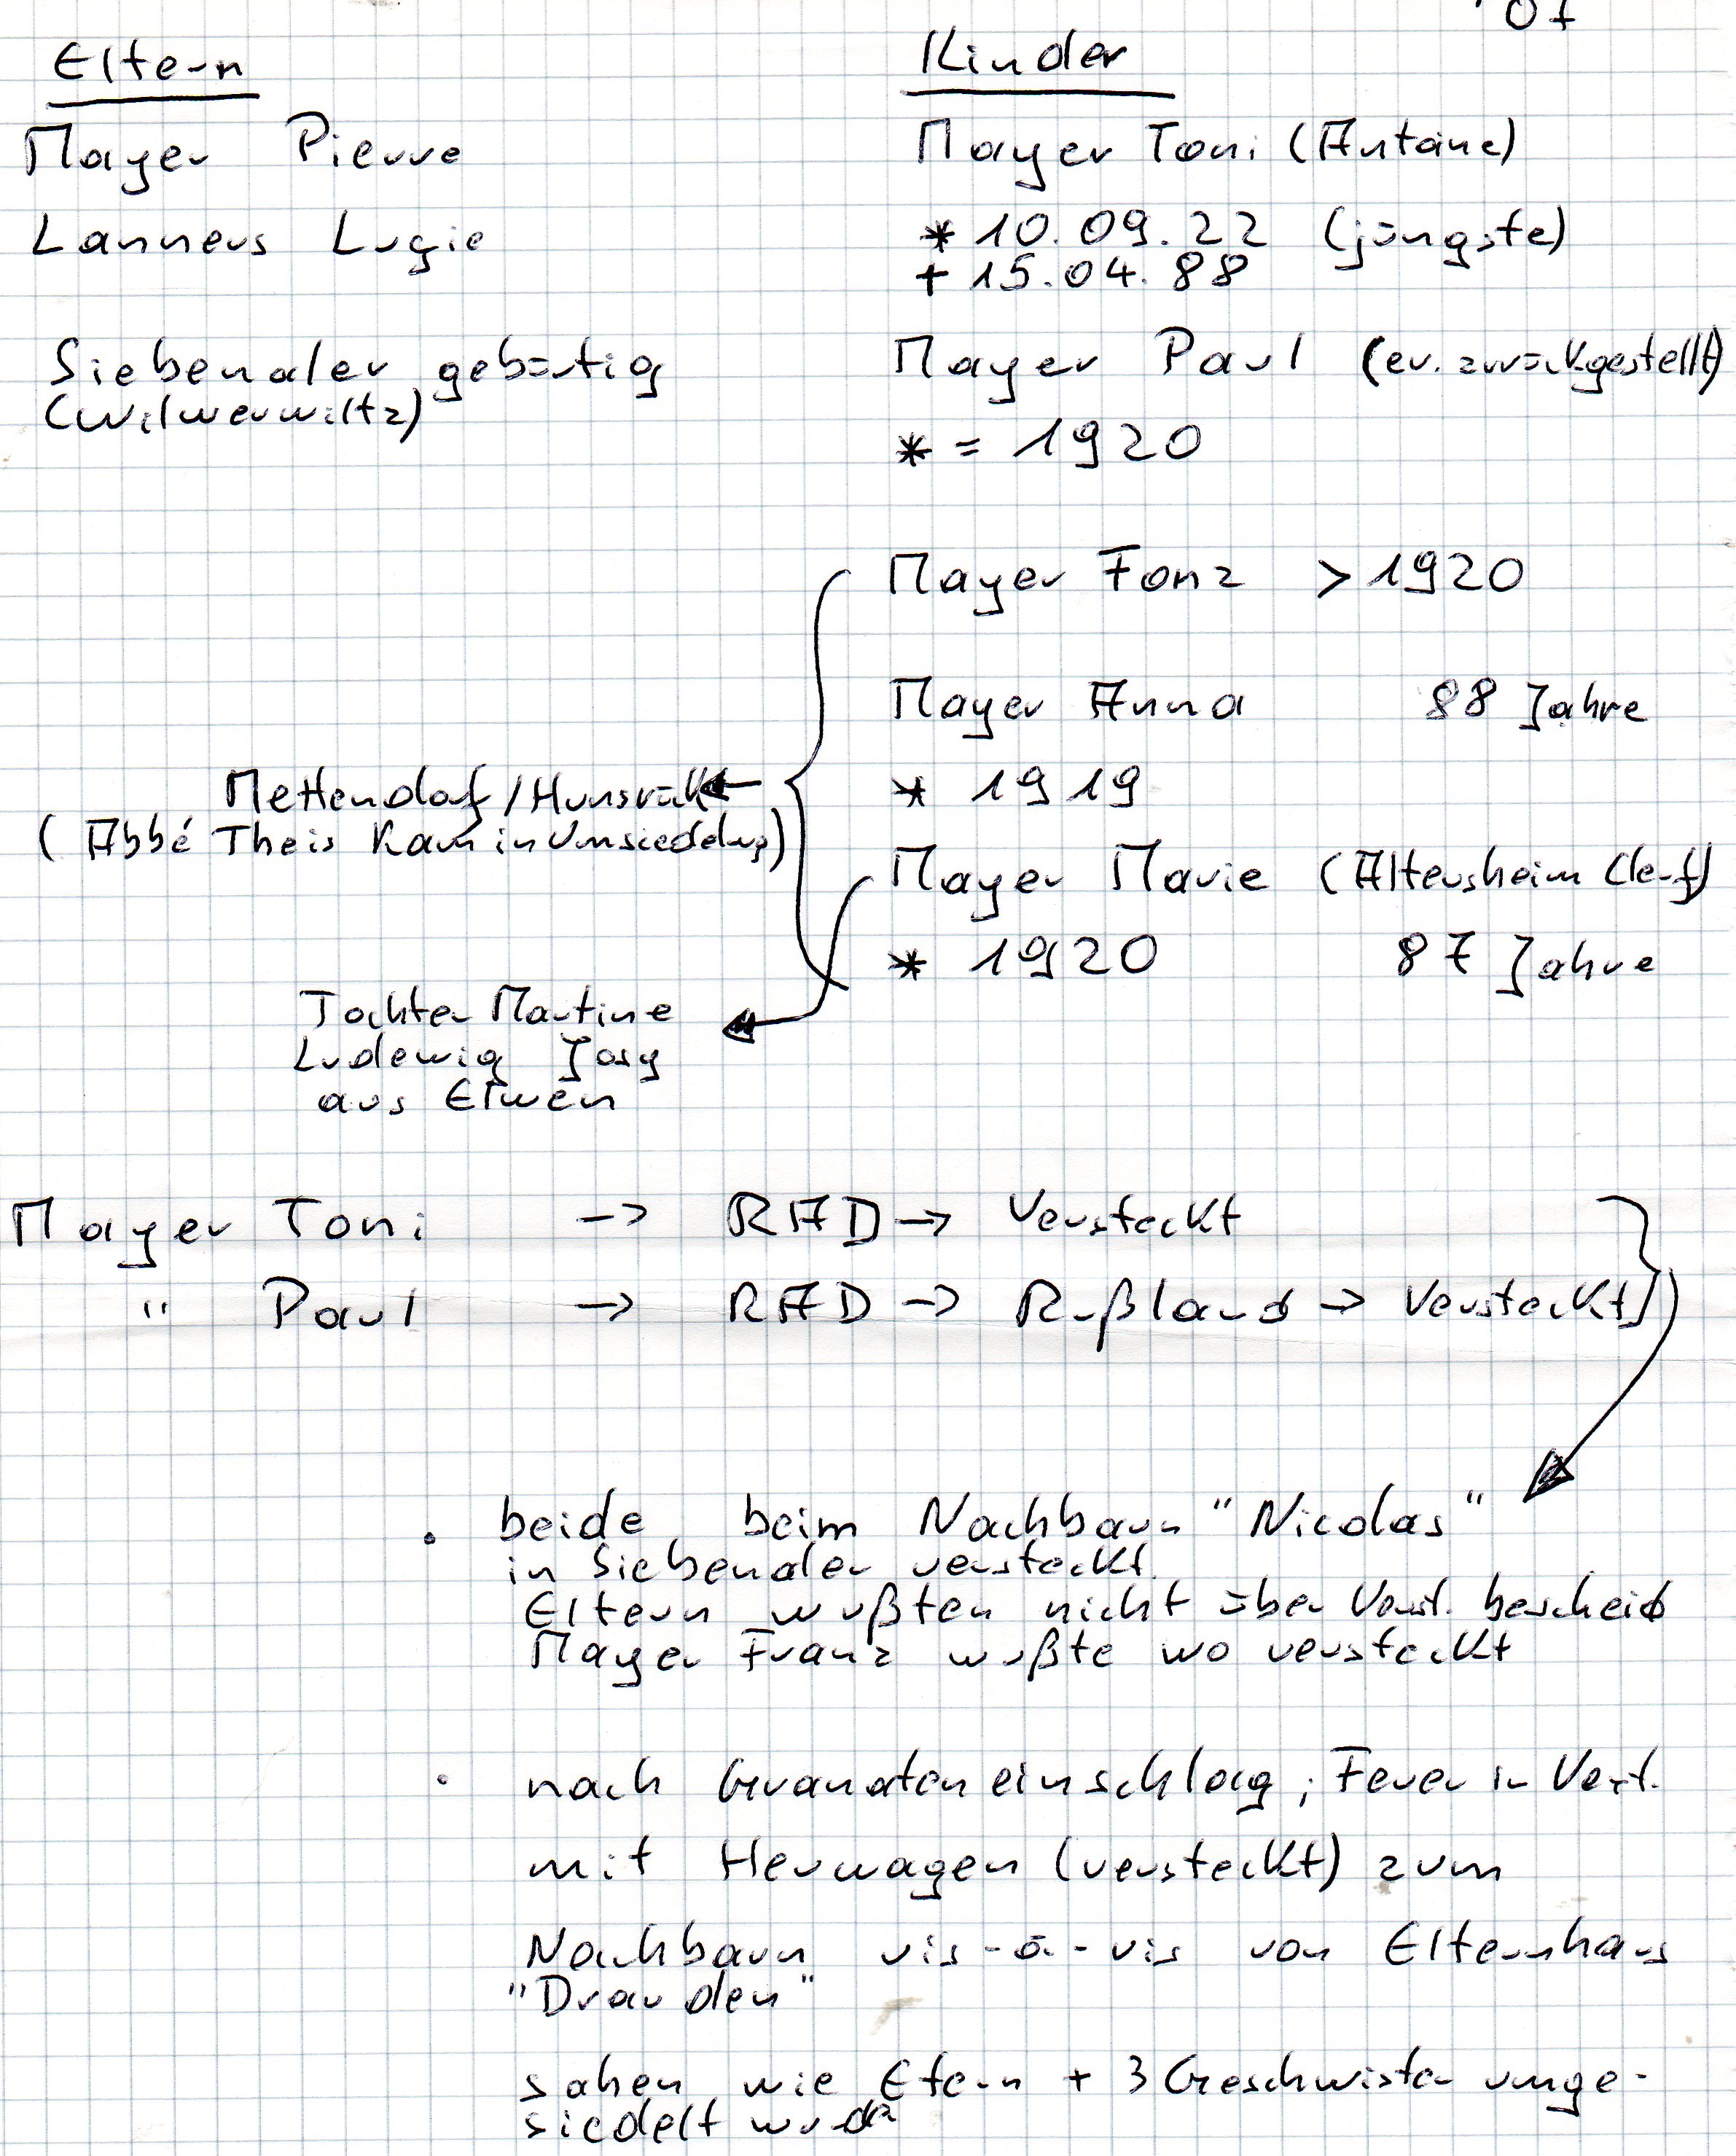 07
Eltern
Kinder
Mayer Pierre
Mayer Toni (Antoine)
Lanners Lugie
* 10.09.22 (jüngste)
+ 15.04.88
Siebenaler gebürtig
(Wilwerwiltz)
Mayer Paul (ev. zurückgestellt)
* = 1920
Mayer Fonz > 1920
Mayer Anna 88 Jahre
* 1919
Mettendorf/Hunsrück
(Abbé Theis Kam in Umsiedelung)
Mayer Marie (Altersheim Clerf)
* 1920 87 Jahre
Tochter Martine
Ludewig Josy
aus Elwen
Mayer Toni -> RAD -> Versteckt
" Paul -> RAD -> Rußland -> Versteckt
• beide beim Nachbarn "Nicolas"
in Siebenaler versteckt.
Eltern wußten nicht über Verst. bescheid
Mayer Franz wußte wo versteckt
• nach Granateneinschlag; Feuer in Verst.
mit Heuwagen (versteckt) zum
Nachbarn vis-à-vis von Elternhaus
"Drauden"
sahen wie Eltern + 3 Geschwister umge-
siedelt wurden